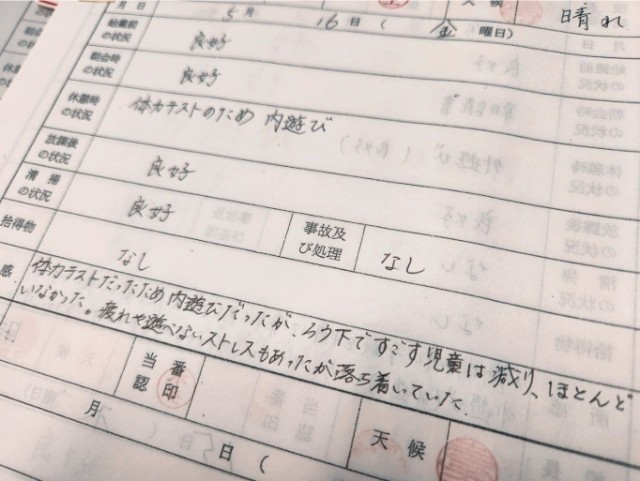 月 日 5月 16日(金曜日) 天候 晴れ
始業前の状況 良好
朝会時の状況 良好
休憩時の状況 体力テストのため 内遊び
放課後の状況 良好
清掃の状況 良好
拾得物 なし 事故及び処理 なし
感 体力テストだったため内遊びだったが、ろう下ですごす児童は減り、ほとんど
いなかった。疲れや遊べないストレスもあったが落ち着いていた。
当番認印 天候
月 日(